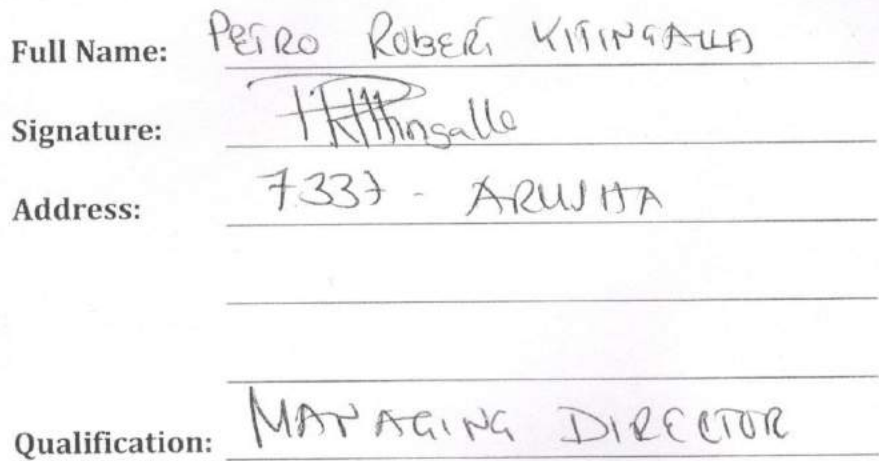 Full Name: PETRO ROBERT KITINGALLA
Signature: PRKitingalla
Address: 7337 - ARUSHA
Qualification: MANAGING DIRECTOR